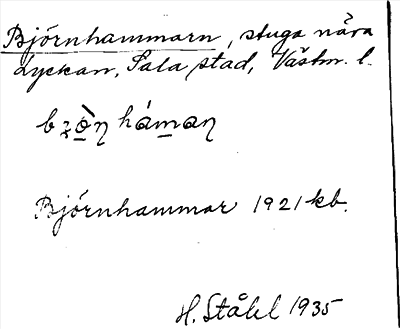 Björnhammarn, stuga nära
Lyckan, Sala stad, Västm. l.
bʒö̀ɳ háma̱ɳ
Björnhammar 1921 kb.
H. Ståhl 1935